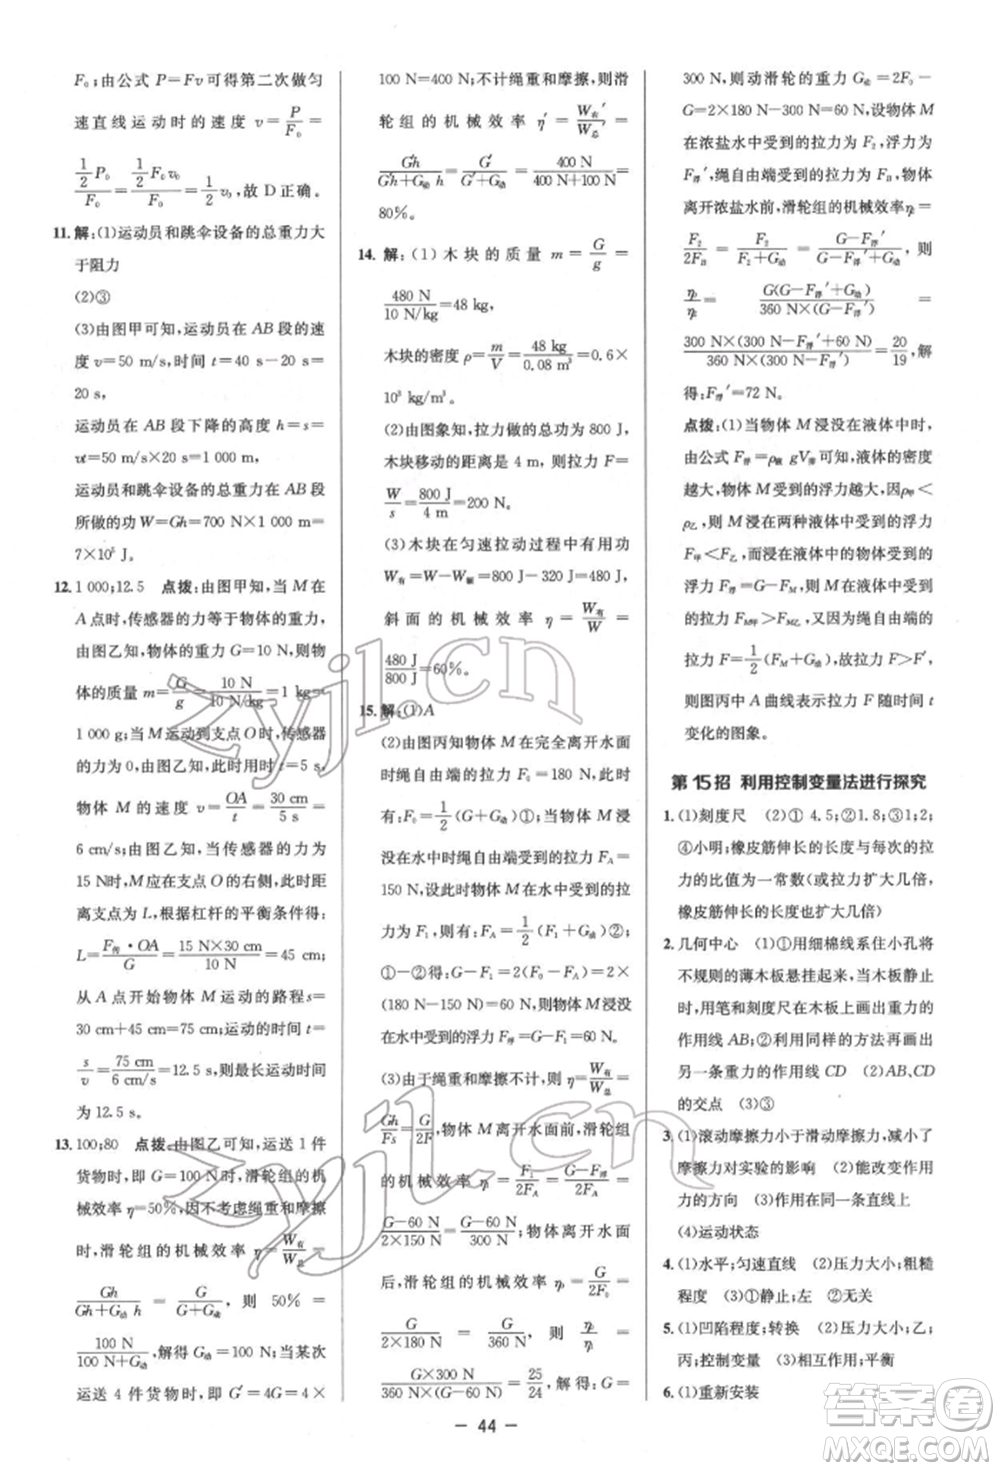 F₀;由公式 P=Fv 可得第二次做匀
速直线运动时的速度 v=P/F₀=
(1/2 P₀)/F₀=(1/2 F₀v₀)/F₀=1/2 v₀,故 D 正确。
11. 解:(1)运动员和跳伞设备的总重力大
于阻力
(2)③
(3)由图甲可知,运动员在 AB 段的速
度 v=50 m/s,时间 t=40 s-20 s=
20 s,
运动员在 AB 段下降的高度 h=s=
vt=50 m/s×20 s=1 000 m,
运动员和跳伞设备的总重力在 AB 段
所做的功 W=Gh=700 N×1 000 m=
7×10⁵ J。
12. 1 000;12.5 点拨:由图甲知,当 M 在
A 点时,传感器的力等于物体的重力,
由图乙知,物体的重力 G=10 N,则物
体的质量 m=G/g=10 N/10 N/kg=1 kg=
1 000 g;当 M 运动到支点 O 时,传感器
的力为 0,由图乙知,此时 t=5 s,则
物体 M 的速度 v=OA/t=30 cm/5 s=
6 cm/s;由图乙知,当传感器的力为
15 N时,M 应该在 O 点的右侧,此时距
离支点为 L,根据杠杆的平衡条件得:
L=F传·OA/G=15 N×30 cm/10 N=45 cm;
从 A 点开始物体 M 运动的路程s=
30 cm+45 cm=75 cm;运动的时间 t=
s/v=75 cm/6 cm/s=12.5 s,则最长运动时间
为12.5 s。
13. 100;80 点拨:由图乙可知,运送 1 件
货物时,即 G=100 N时,滑轮组的机械
效率 η=50%,因不考虑绳重和摩擦
时,滑轮组的机械效率 η=W有/W总=
Gh/(Gh+G动h)=G/(G+G动),则 50%=
100 N/(100 N+G动),解得 G动=100 N;当某次
运送 4 件货物时,即 G′=4G=4×
100 N=400 N;不计绳重和摩擦,则滑
轮组的机械效率 η′=W有′/W总′=
G′h/(G′h+G动h)=G′/(G′+G动)=400 N/(400 N+100 N)=
80%。
14. 解:(1)木块的质量 m=G/g=
480 N/10 N/kg=48 kg,
木块的密度 ρ=m/V=48 kg/0.08 m³=0.6×
10³ kg/m³。
(2)由图象知,拉力做的总功为800 J,
木块移动的距离是 4 m,则拉力 F=
W/s=800 J/4 m=200 N。
(3)木块在匀速拉动过程中有用功
W有=W-W额=800 J-320 J=480 J,
斜面的机械效率 η=W有/W=
480 J/800 J=60%。
15. 解:(1)A
(2)由图丙知物体 M 在完全离开水面
时绳自由端受到的拉力 F₀=180 N,则
F₀=1/2(G+G动)①;当物体 M 浸没
在水中时绳自由端受到的拉力 F_A=
150 N,设物体 M 在水中时受到的拉
力为 F₁,则有:F_A=1/2(F₁+G动)②;
由①②可得:G-F₁=2(F₀-F_A)=2×
(180 N-150 N)=60 N,则物体M浸没
在水中受到的浮力 F浮=G-F₁=60 N。
(3)由于绳重和摩擦不计,则 η=W有/W总=
Gh/Fs=G/2F,物体 M 离开水面前,滑轮
组的机械效率 η₁=F₁/2F_A=(G-F浮)/2F_A=
(G-60 N)/(2×150 N)=(G-60 N)/300 N;物体离开水面
后,滑轮组的机械效率 η₂=G/2F₀=
G/(2×180 N)=G/360 N,则 η₁/η₂=
G×300 N/360 N×(G-60 N)=25/24,解得:G=
300 N,则动滑轮的重力 G动=2F₀-
G=2×180 N-300 N=60 N,设物体 M
在浓盐水中受到的拉力为 F₂,浮力为
F浮′,绳自由端受到的拉力为 F_B,物体
离开浓盐水前,滑轮组的机械效率η₁=
F₂/2F_B=F₂/(F₂+G动)=(G-F浮′)/(G-F浮′+G动),则
η₂/η₁=G(G-F浮′+G动)/360 N×(G-F浮′)=
300 N×(300 N-F浮′+60 N)/360 N×(300 N-F浮′)=20/19,解
得:F浮′=72 N。
点拨:(1)当物体 M 浸没在液体中时,
由公式 F浮=ρ液gV排可知,液体的密度
越大,物体 M受到的浮力越大,因ρ甲<
ρ乙,则 M 浸没在两种液体中受的浮力
F甲<F乙,而浸没在液体中时受到的
浮力 F浮=G-F_M,则物体 M 受到
的拉力 F_M甲>F_M乙,绳自由端受到
的拉力 F=1/2(F_M+G动),故拉力 F>F′,
则图丙中 A 曲线表示拉力 F 随时间 t
变化的图象。
第 15招 利用控制变量法进行探究
1. (1)刻度尺 (2)① 4.5;②1.8;③1;2;
④小明;橡皮筋伸长的长度与每次的拉
力的比值为一常数(或拉力扩大几倍,
橡皮筋伸长的长度也扩大几倍)
2. 几何中心 (1)①用细棉线系住小孔将
不规则的薄木板悬挂起来,当木板静止
时,用笔和刻度尺在木板上画出重力的
作用线 AB;②用同样的方法再画出
另一条重力的作用线 CD (2)AB、CD
的交点 (3)③
3. (1)滚动摩擦力小于滑动摩擦力,减小
摩擦力对实验的影响 (2)能改变作用
力的方向 (3)作用在同一条直线上
(4)运动状态
4. (1)水平;匀速直线 (2)压力大小;粗糙
程度 (3)①静止;左 ②无关
5. (1)凹陷程度;转换 (2)压力;甲、乙;乙、
丙;控制变量 (3)相互作用;平衡
6. (1)重新安装
— 44 —
zyjl.cn
zyjl.cn
答案圈
MXQE.COM